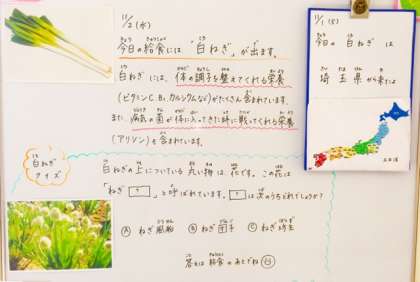 11/2(水)
今日の給食には "白ねぎ" が出ます。
白ねぎには、体の調子を整えてくれる栄養
(ビタミンC、B₁、カルシウムなど)がたくさん含まれています。
また、病気の菌が体に入ってきた時に戦ってくれる栄養
(アリシン)も含まれています。
白ねぎクイズ
白ねぎの上についている丸い物は花です。この花は
「ねぎ ? 」と呼ばれています。 ? は次のうちどれでしょうか?
Ⓐ ねぎ風船 Ⓑ ねぎ団子 Ⓒ ねぎ坊主
答えは給食のあとでね
今日の 白ねぎ は
埼玉県から来たよ